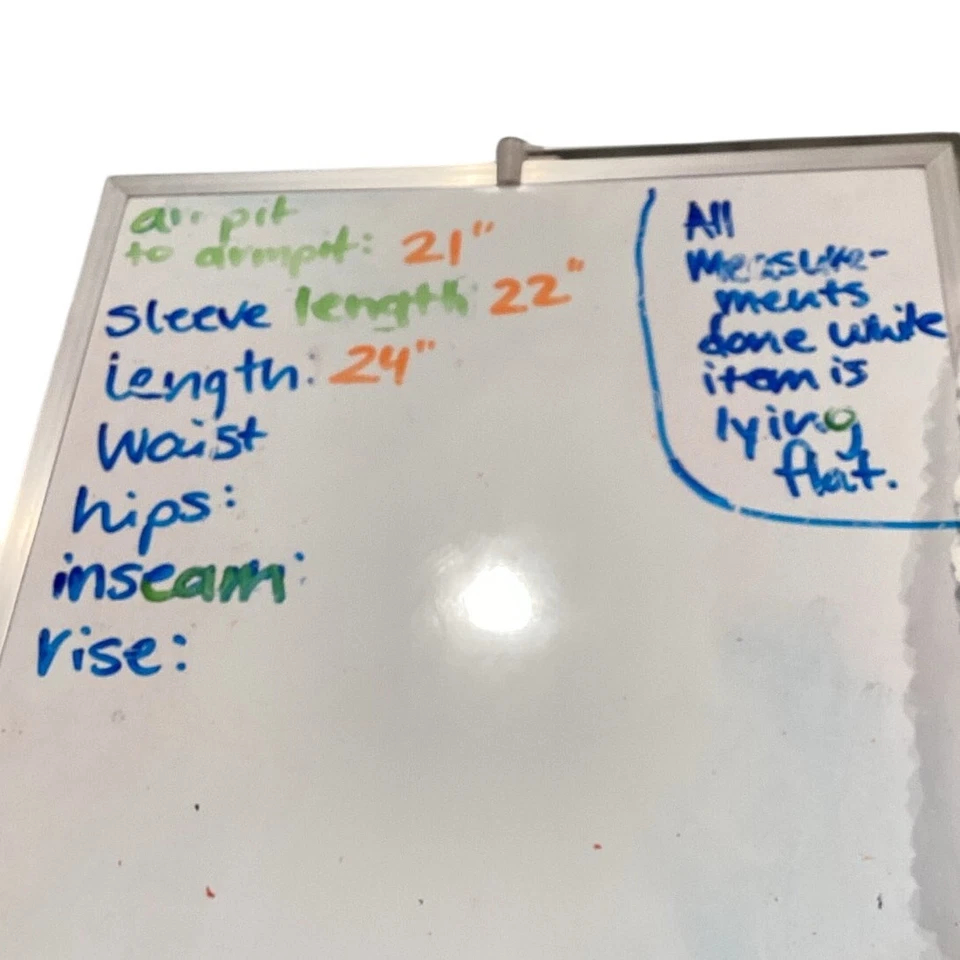 armpit
to armpit: 21"
sleeve length 22"
length: 24"
Waist
hips:
inseam:
rise:
All
Measure-
ments
done while
item is
lying
flat.